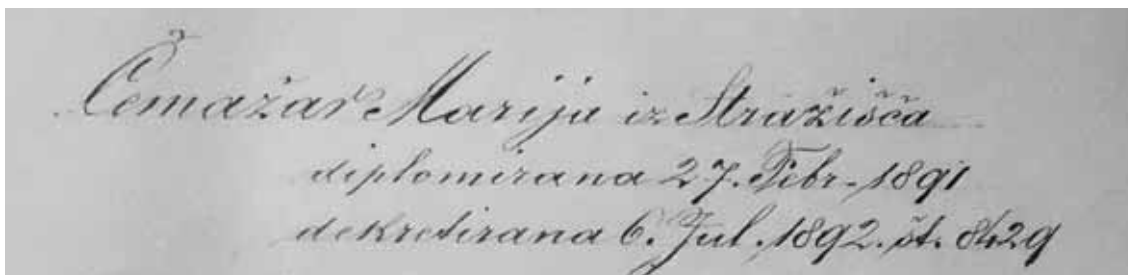 Čemažar Marija iz Stražišča
diplomirana 27. Febr. 1891
dekretirana 6. Jul. 1892. št. 8429